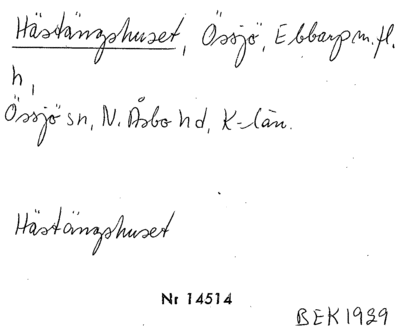 Hästängshuset, Össjö, Ebbarp m.fl.
h,
Össjö sn, N. Åsbo hd, K-län.
Hästängshuset
Nr 14514
BEK 1929